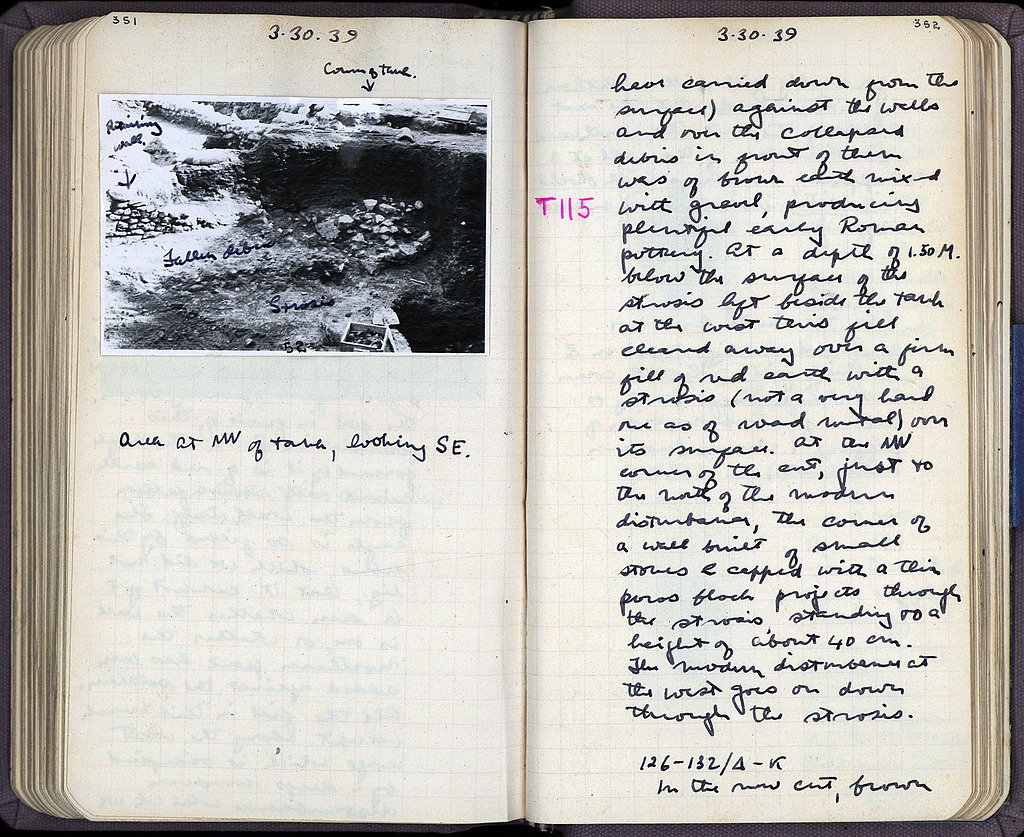 351
3-30-39
Corner of tank.
Retaining wall.
Fallen debris
Strosis
52
Area at NW of tank, looking SE.
352
3-30-39
have carried down from the
surface) against the walls
and over the collapsed
debris in front of them
was of brown earth mixed
T115
with gravel, producing
plentiful early Roman
pottery. At a depth of 1.50 M.
below the surface of the
strosis left beside the tank
at the west this fill
cleaned away over a firm
fill of red earth with a
strosis (not a very hard
one as of road metal) over
its surface. At the NW
corner of the cut, just to
the north of the modern
disturbance, the corner of
a wall built of small
stones & capped with a thin
poros block projects through
the strosis standing to a
height of about 40 cm.
The modern disturbance at
the west goes on down
through the strosis.
126-132/Δ-K
In the new cut, brown